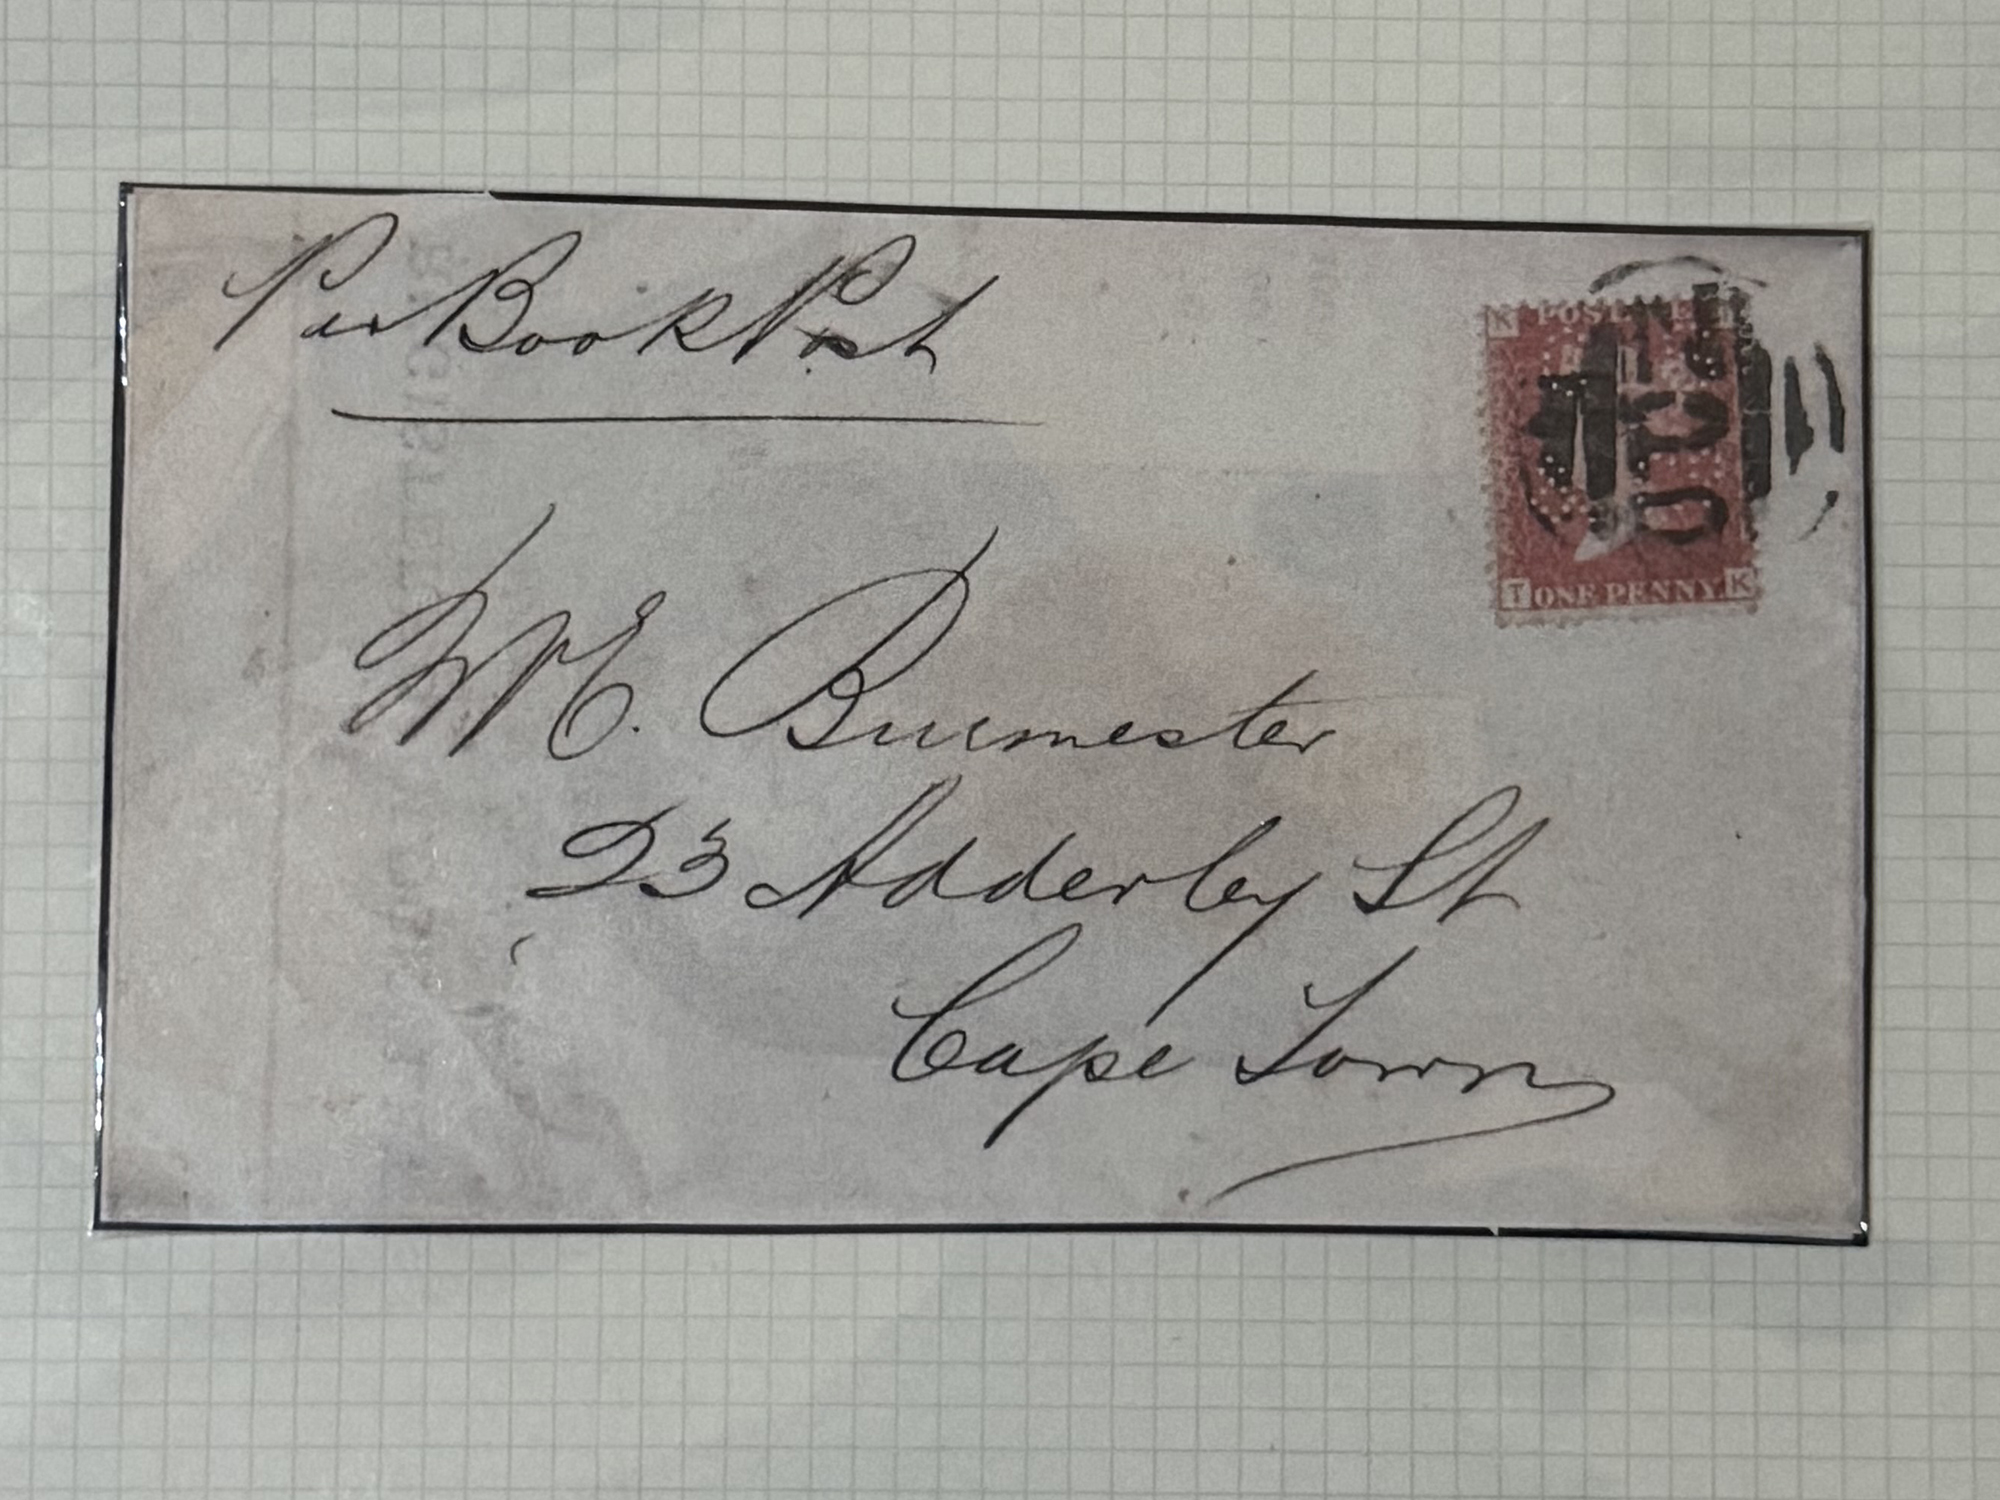 Per Book Post
K POSTAGE T
T ONE PENNY K
W E. Burmester
23 Adderley St
Cape Town